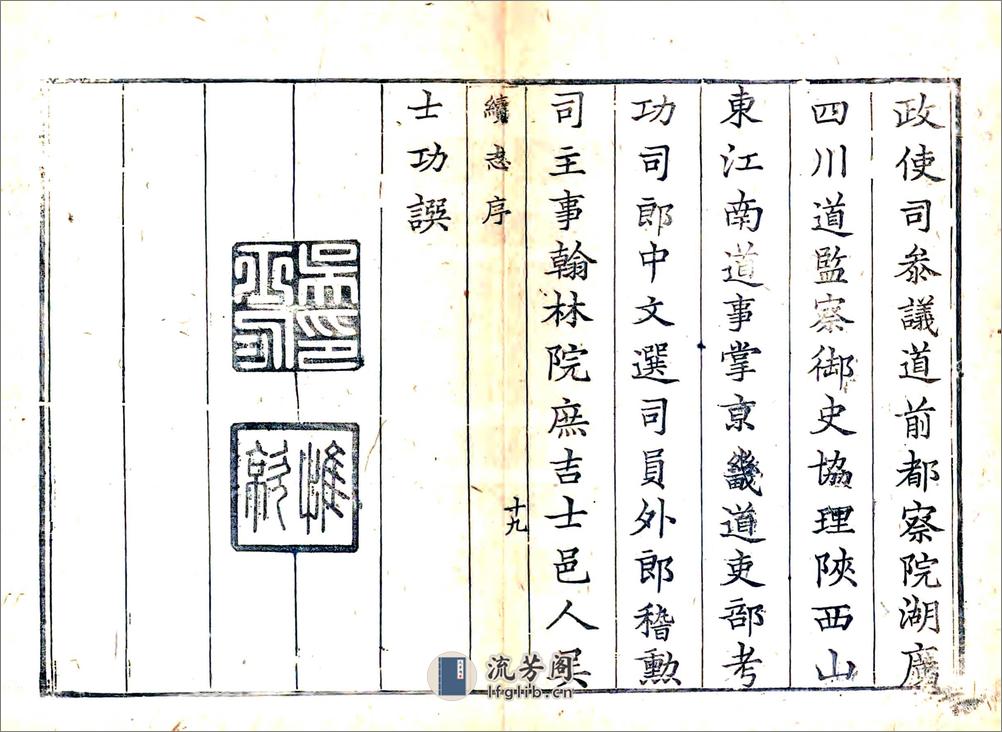 政使司叅議道前都察院湖廣
四川道監察御史協理陝西山
東江南道事掌京畿道吏部考
功司郎中文選司員外郎稽勳
司主事翰林院庶吉士邑人吳
續志序
十九
士功譔
吳印
士功
流芳阁
lfglib.cn